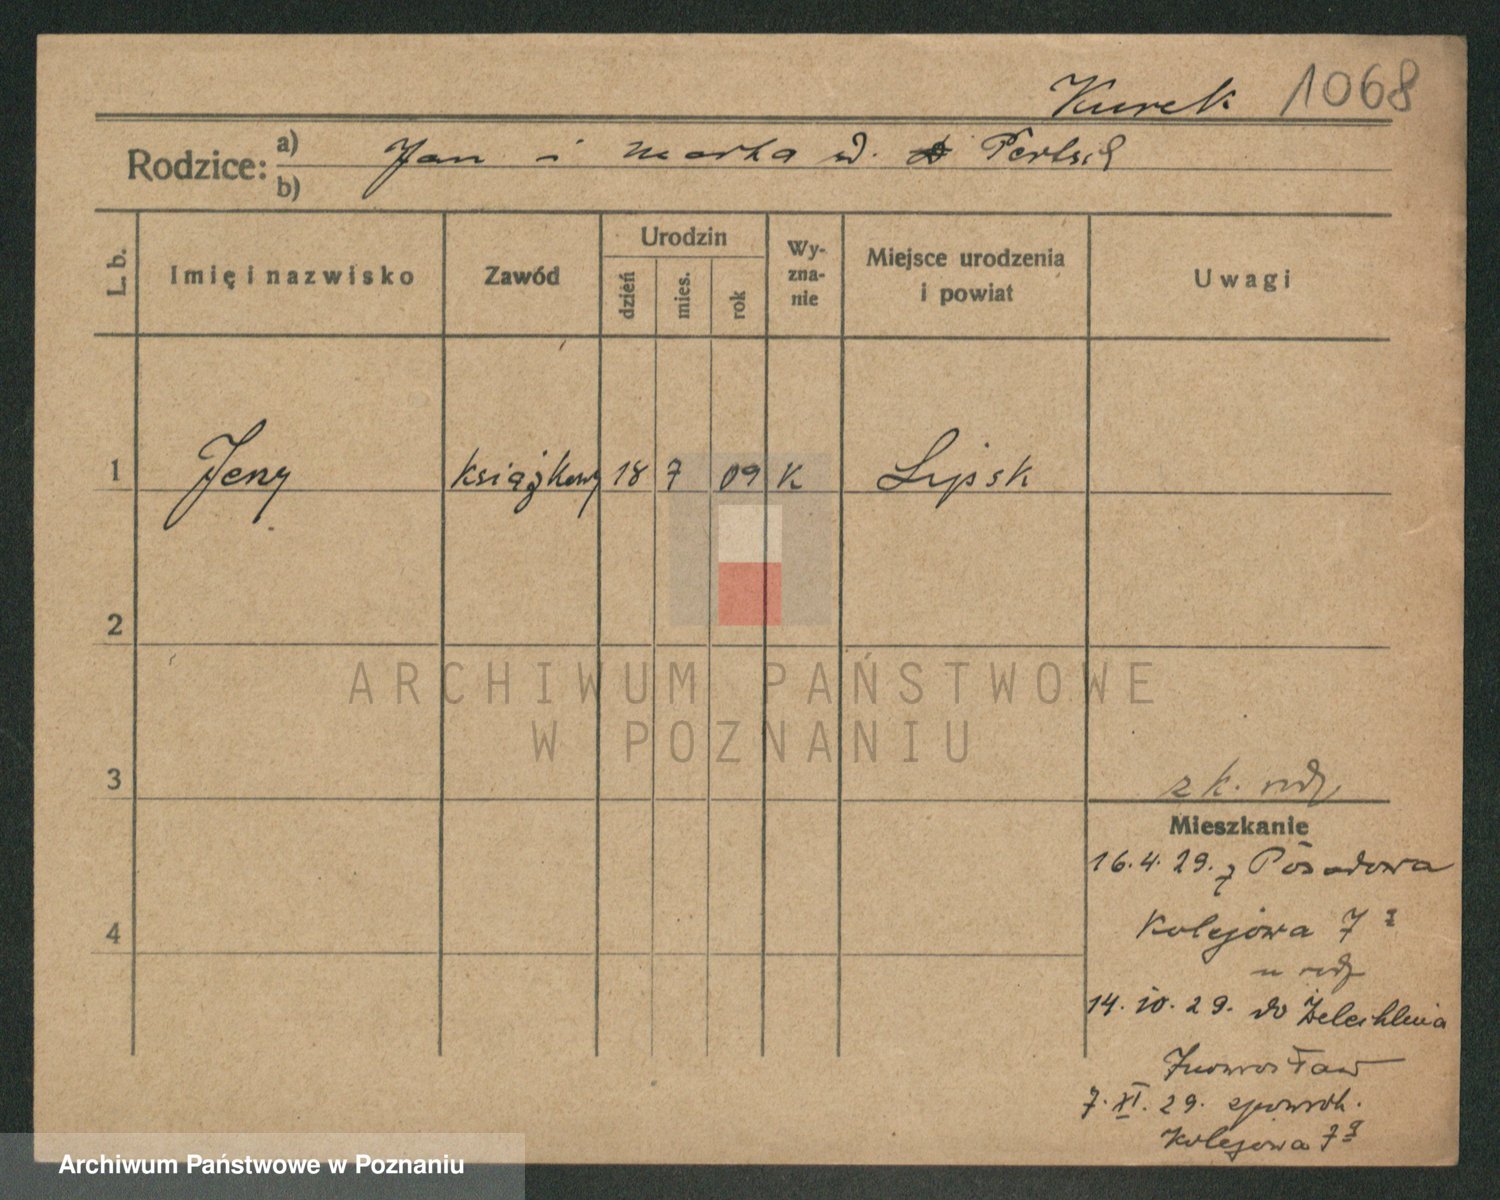 Kurek 1068
Rodzice: a) Jan i Marta
b)
L. b.
Imię i nazwisko
Zawód
Urodzin
dzień
mies.
rok
Wy-
zna-
nie
Miejsce urodzenia
i powiat
Uwagi
1 Jerzy książkowy 18 7 09 K Lipsk
2
ARCHIWUM PAŃSTWOWE
W POZNANIU
3
z k.
Mieszkanie
16.4.29. z Posadowa
4
Kolejowa 7
14.10.29. do
Inowrosław
7.XI.29.
Kolejowa 7
Archiwum Państwowe w Poznaniu